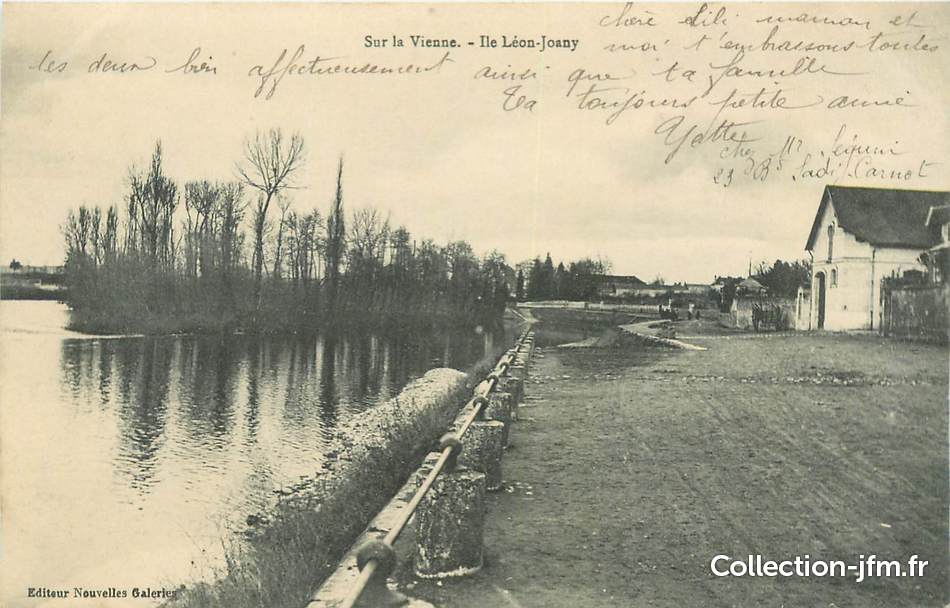 Sur la Vienne. - Ile Léon-Joany
chère Lili maman et
moi t'embrassons toutes
les deux bien affectueusement ainsi que ta famille
Ta toujours petite amie
Yette
chez Mr
23 Bd Sadi-Carnot
Collection-jfm.fr
Editeur Nouvelles Galeries